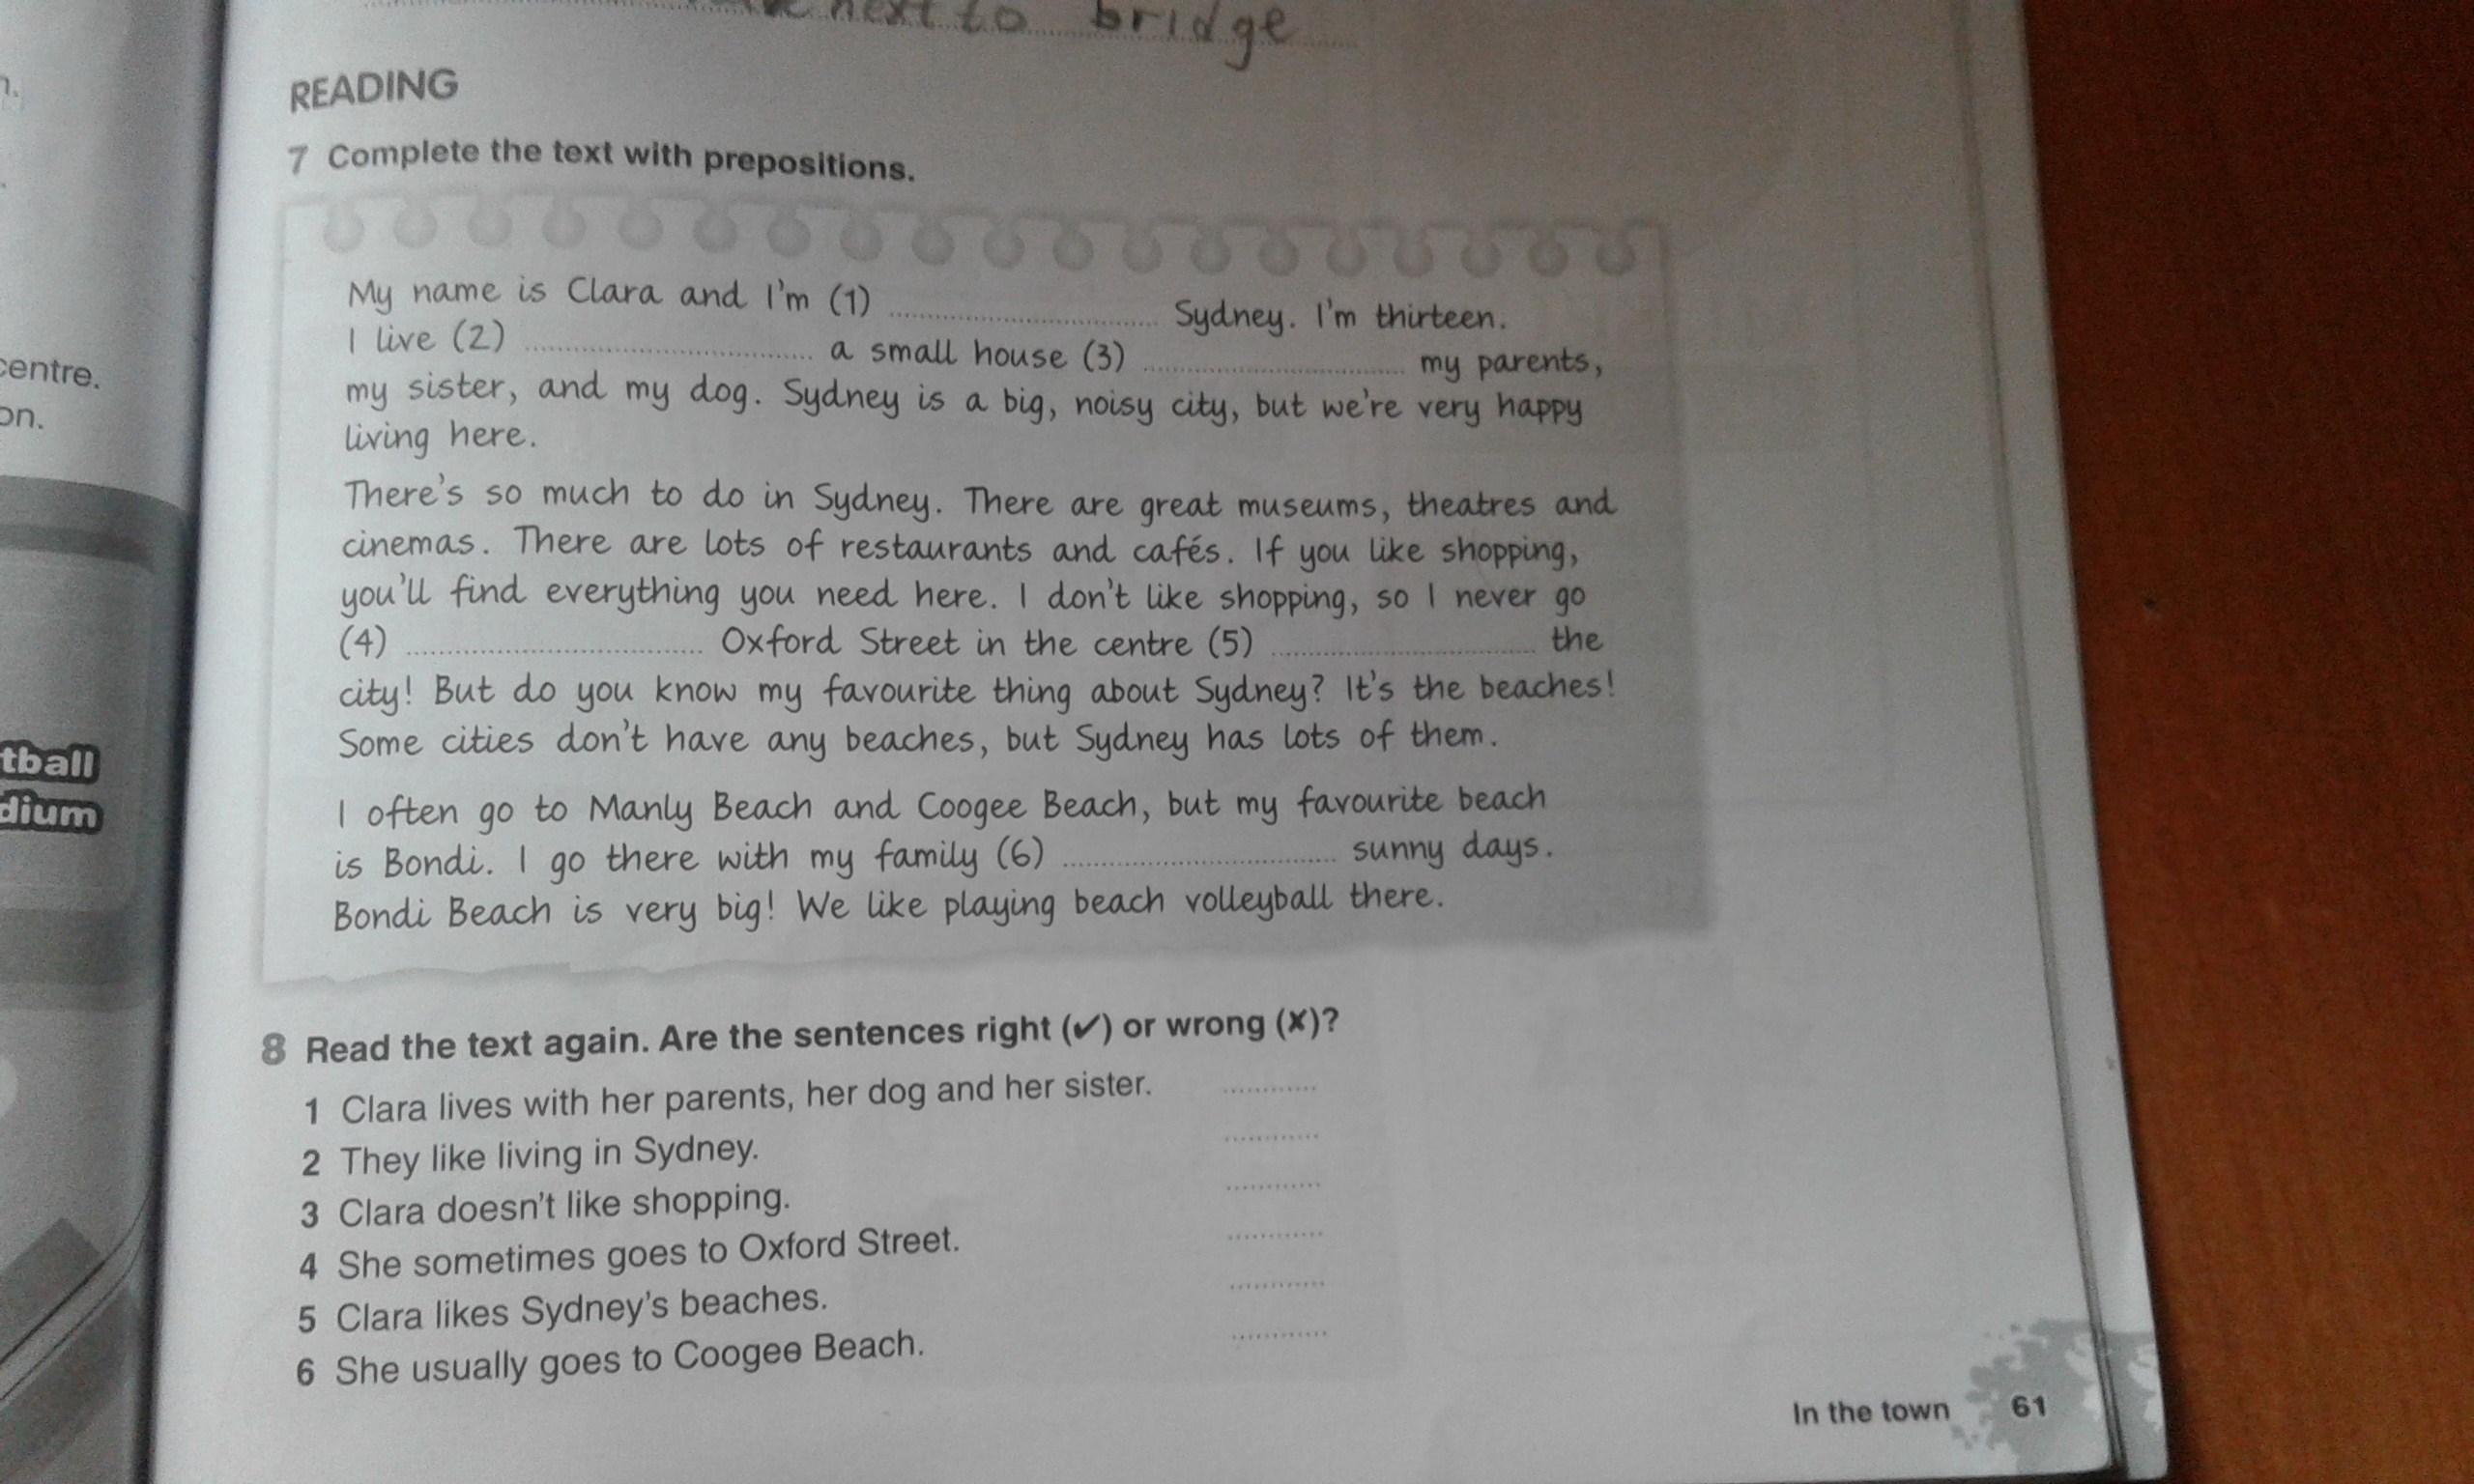 next to bridge
READING
7 Complete the text with prepositions.
My name is Clara and I'm (1) .............................. Sydney. I'm thirteen.
I live (2) .............................. a small house (3) .............................. my parents,
my sister, and my dog. Sydney is a big, noisy city, but we're very happy
living here.
There's so much to do in Sydney. There are great museums, theatres and
cinemas. There are lots of restaurants and cafés. If you like shopping,
you'll find everything you need here. I don't like shopping, so I never go
(4) .............................. Oxford Street in the centre (5) .............................. the
city! But do you know my favourite thing about Sydney? It's the beaches!
Some cities don't have any beaches, but Sydney has lots of them.
I often go to Manly Beach and Coogee Beach, but my favourite beach
is Bondi. I go there with my family (6) .............................. sunny days.
Bondi Beach is very big! We like playing beach volleyball there.
8 Read the text again. Are the sentences right (✔) or wrong (✘)?
1 Clara lives with her parents, her dog and her sister. ............
2 They like living in Sydney. ............
3 Clara doesn't like shopping. ............
4 She sometimes goes to Oxford Street. ............
5 Clara likes Sydney's beaches. ............
6 She usually goes to Coogee Beach. ............
In the town 61
centre.
on.
tball
dium